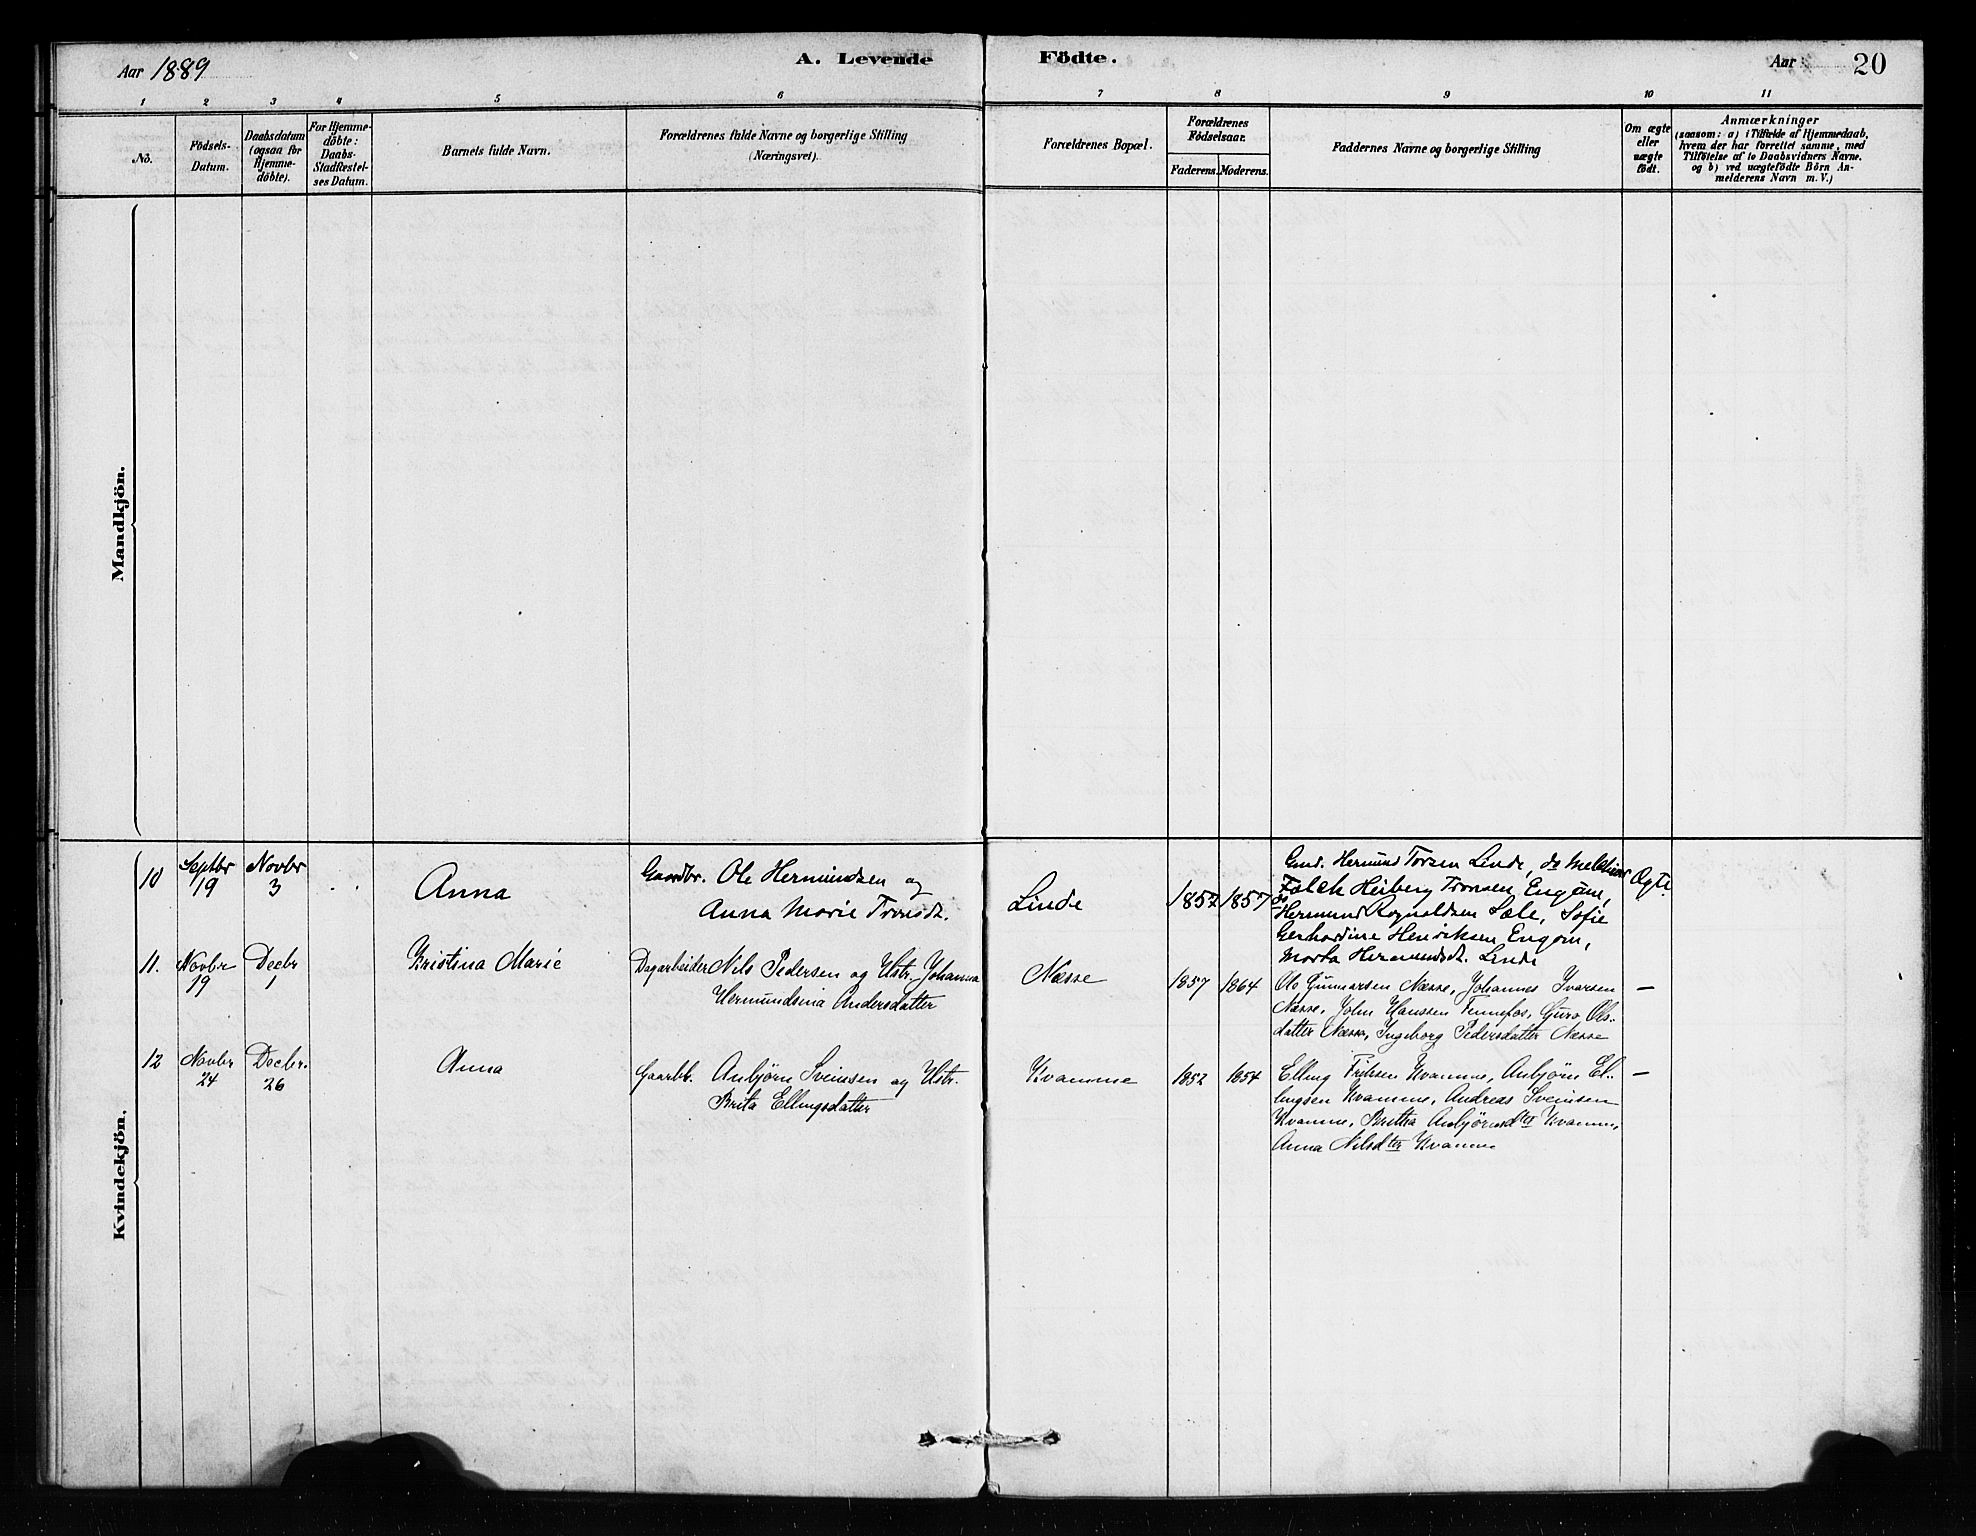 Aar 1889
A. Levende Födte.
Aar
20
1 2 3 4 5 6 7 8 9 10 11
No.
Födsels-
Datum.
Daabsdatum
(ogsaa for
Hjemme-
döbte).
For Hjemme-
döbte:
Daabs-
Stadfæstel-
ses Datum.
Barnets fulde Navn.
Forældrenes fulde Navne og borgerlige Stilling
(Næringsvei).
Forældrenes Bopæl.
Forældrenes
Födselsaar.
Faderens. Moderens.
Faddernes Navne og borgerlige Stilling
Om ægte
eller
uægte
födt.
Anmærkninger
(saasom: a) i Tilfælde af Hjemmedaab,
hvem der har forrettet samme, med
Tilföielse af to Daabsvidners Navne,
og b) ved uægtefödte Börn An-
melderens Navn m. V.)
Mandkjön.
Kvindekjön.
10
Septbr
19
Novbr
3
Anna
Gaardbr. Ole Hermundsen og
Anna Marie Tronsdt.
Linde
1852 1857
Gmd. Hermund Torsen Linde, do Melchior
Falck Heiberg Tronsen Engum,
do Hermund Rognaldsen Sæle, Sofie
Gerhardine Henriksen Engom,
Marta Hermundsdt. Linde
Ægte
11.
Novbr
19
Decbr
1
Kristina Marie
Dagarbeider Nils Pedersen og Hstr. Johanna
Hermundsina Andersdatter
Næsse
1857 1864
Ole Gunnarsen Næsse, Johannes Ivarsen
Næsse, John Hanssen Tennefos, Guro Ols-
datter Næsse, Ingeborg Pedersdatter Næsse
—
12
Novbr
24
Decbr.
26
Anna
Gaarbb. Anbjørn Sveinsen og Hstr.
Brita Ellingsdatter
Kvamme
1852 1854
Elling Kvamme, Anbjørn El-
lingsen Kvamme, Andreas Sveinsen
Kvamme, Britha Anbjørnsdter Kvamme,
Anna Nilsdter Kvamme
—